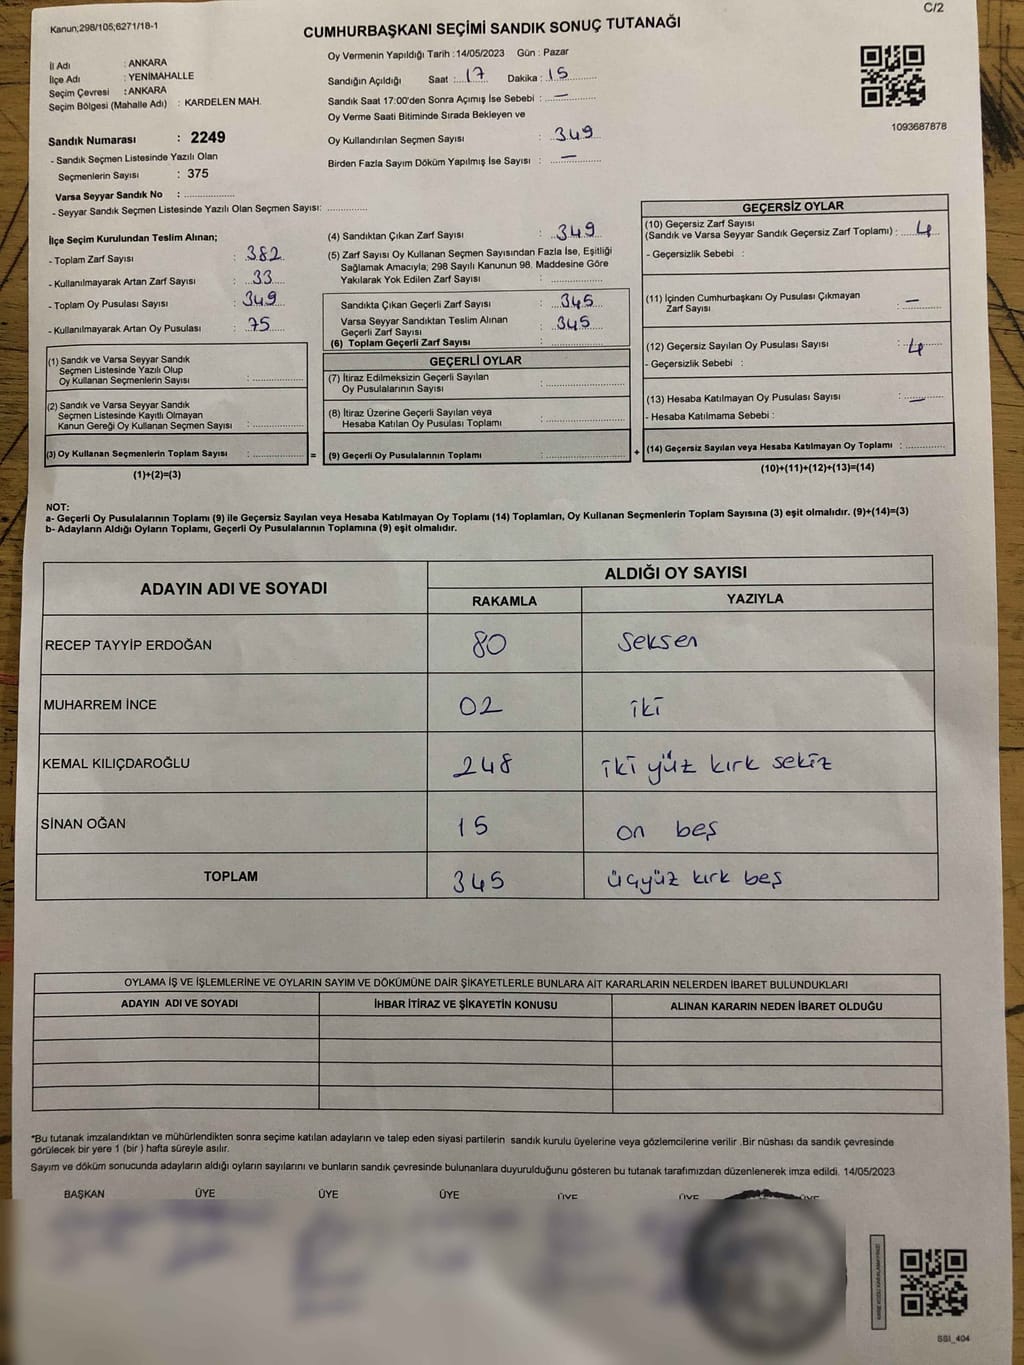 C/2
Kanun;298/105;6271/18-1
CUMHURBAŞKANI SEÇİMİ SANDIK SONUÇ TUTANAĞI
İl Adı : ANKARA
İlçe Adı : YENİMAHALLE
Seçim Çevresi : ANKARA
Seçim Bölgesi (Mahalle Adı) : KARDELEN MAH.
Sandık Numarası : 2249
- Sandık Seçmen Listesinde Yazılı Olan
Seçmenlerin Sayısı : 375
Varsa Seyyar Sandık No : ..............
- Seyyar Sandık Seçmen Listesinde Yazılı Olan Seçmen Sayısı: ............
Oy Vermenin Yapıldığı Tarih :14/05/2023 Gün : Pazar
Sandığın Açıldığı Saat : 17 Dakika : 15
Sandık Saat 17:00'den Sonra Açımış İse Sebebi : —
Oy Verme Saati Bitiminde Sırada Bekleyen ve
Oy Kullandırılan Seçmen Sayısı : 349
Birden Fazla Sayım Döküm Yapılmış İse Sayısı : —
1093687878
İlçe Seçim Kurulundan Teslim Alınan;
- Toplam Zarf Sayısı : 382
- Kullanılmayarak Artan Zarf Sayısı : 33
- Toplam Oy Pusulası Sayısı : 349
- Kullanılmayarak Artan Oy Pusulası : 75
(1) Sandık ve Varsa Seyyar Sandık
Seçmen Listesinde Yazılı Olup
Oy Kullanan Seçmenlerin Sayısı : ..............
(2) Sandık ve Varsa Seyyar Sandık
Seçmen Listesinde Kayıtlı Olmayan
Kanun Gereği Oy Kullanan Seçmen Sayısı : ..............
(3) Oy Kullanan Seçmenlerin Toplam Sayısı : .............. =
(1)+(2)=(3)
(4) Sandıktan Çıkan Zarf Sayısı : 349
(5) Zarf Sayısı Oy Kullanan Seçmen Sayısından Fazla İse, Eşitliği
Sağlamak Amacıyla; 298 Sayılı Kanunun 98. Maddesine Göre
Yakılarak Yok Edilen Zarf Sayısı : ..............
Sandıkta Çıkan Geçerli Zarf Sayısı : 345
Varsa Seyyar Sandıktan Teslim Alınan
Geçerli Zarf Sayısı : 345
(6) Toplam Geçerli Zarf Sayısı : ..............
GEÇERLİ OYLAR
(7) İtiraz Edilmeksizin Geçerli Sayılan
Oy Pusulalarının Sayısı : ..............
(8) İtiraz Üzerine Geçerli Sayılan veya
Hesaba Katılan Oy Pusulası Toplamı : ..............
(9) Geçerli Oy Pusulalarının Toplamı : .............. +
GEÇERSİZ OYLAR
(10) Geçersiz Zarf Sayısı
(Sandık ve Varsa Seyyar Sandık Geçersiz Zarf Toplamı) : 4
- Geçersizlik Sebebi :
(11) İçinden Cumhurbaşkanı Oy Pusulası Çıkmayan
Zarf Sayısı : —
(12) Geçersiz Sayılan Oy Pusulası Sayısı : 4
- Geçersizlik Sebebi :
(13) Hesaba Katılmayan Oy Pusulası Sayısı : —
- Hesaba Katılmama Sebebi :
(14) Geçersiz Sayılan veya Hesaba Katılmayan Oy Toplamı : ............
(10)+(11)+(12)+(13)=(14)
NOT:
a- Geçerli Oy Pusulalarının Toplamı (9) ile Geçersiz Sayılan veya Hesaba Katılmayan Oy Toplamı (14) Toplamları, Oy Kullanan Seçmenlerin Toplam Sayısına (3) eşit olmalıdır. (9)+(14)=(3)
b- Adayların Aldığı Oyların Toplamı, Geçerli Oy Pusulalarının Toplamına (9) eşit olmalıdır.
ADAYIN ADI VE SOYADI
ALDIĞI OY SAYISI
RAKAMLA YAZIYLA
RECEP TAYYİP ERDOĞAN 80 seksen
MUHARREM İNCE 02 iki
KEMAL KILIÇDAROĞLU 248 iki yüz kırk sekiz
SİNAN OĞAN 15 on beş
TOPLAM 345 üçyüz kırk beş
OYLAMA İŞ VE İŞLEMLERİNE VE OYLARIN SAYIM VE DÖKÜMÜNE DAİR ŞİKAYETLERLE BUNLARA AİT KARARLARIN NELERDEN İBARET BULUNDUKLARI
ADAYIN ADI VE SOYADI İHBAR İTİRAZ VE ŞİKAYETİN KONUSU ALINAN KARARIN NEDEN İBARET OLDUĞU
*Bu tutanak imzalandıktan ve mühürlendikten sonra seçime katılan adayların ve talep eden siyasi partilerin sandık kurulu üyelerine veya gözlemcilerine verilir .Bir nüshası da sandık çevresinde
görülecek bir yere 1 (bir ) hafta süreyle asılır.
Sayım ve döküm sonucunda adayların aldığı oyların sayılarını ve bunların sandık çevresinde bulunanlara duyurulduğunu gösteren bu tutanak tarafımızdan düzenlenerek imza edildi. 14/05/2023
BAŞKAN ÜYE ÜYE ÜYE ÜYE ÜYE ÜYE
SSI_404